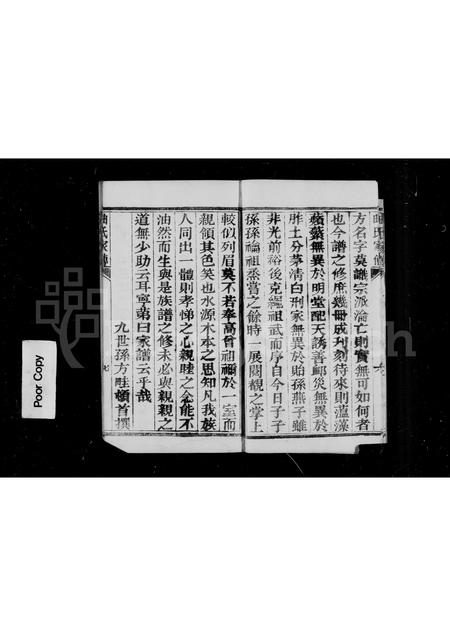 方名字莫譏宗派淪亡則實無可如何者
也今譜之修庶幾冊成刋刻待來則薀藻
蘋蘩無異於明堂配天誘善郵災無異於
胙土分茅清白刑家無異於貽孫燕子雖
非光前裕後克繩祖武而序自今日子子
孫孫禴祖烝嘗之餘時一展閱觀之掌上
較似列眉莫不若奉高曾祖禰於一室而
親領其色笑也水源木本之思知凡我族
人同出一體則孝悌之心親睦之念能不
油然而生與是族譜之修未必與親親之
道無少助云耳寧第曰家譜云乎哉
九世孫方畦頓首撰
氏家
七
Poor Copy